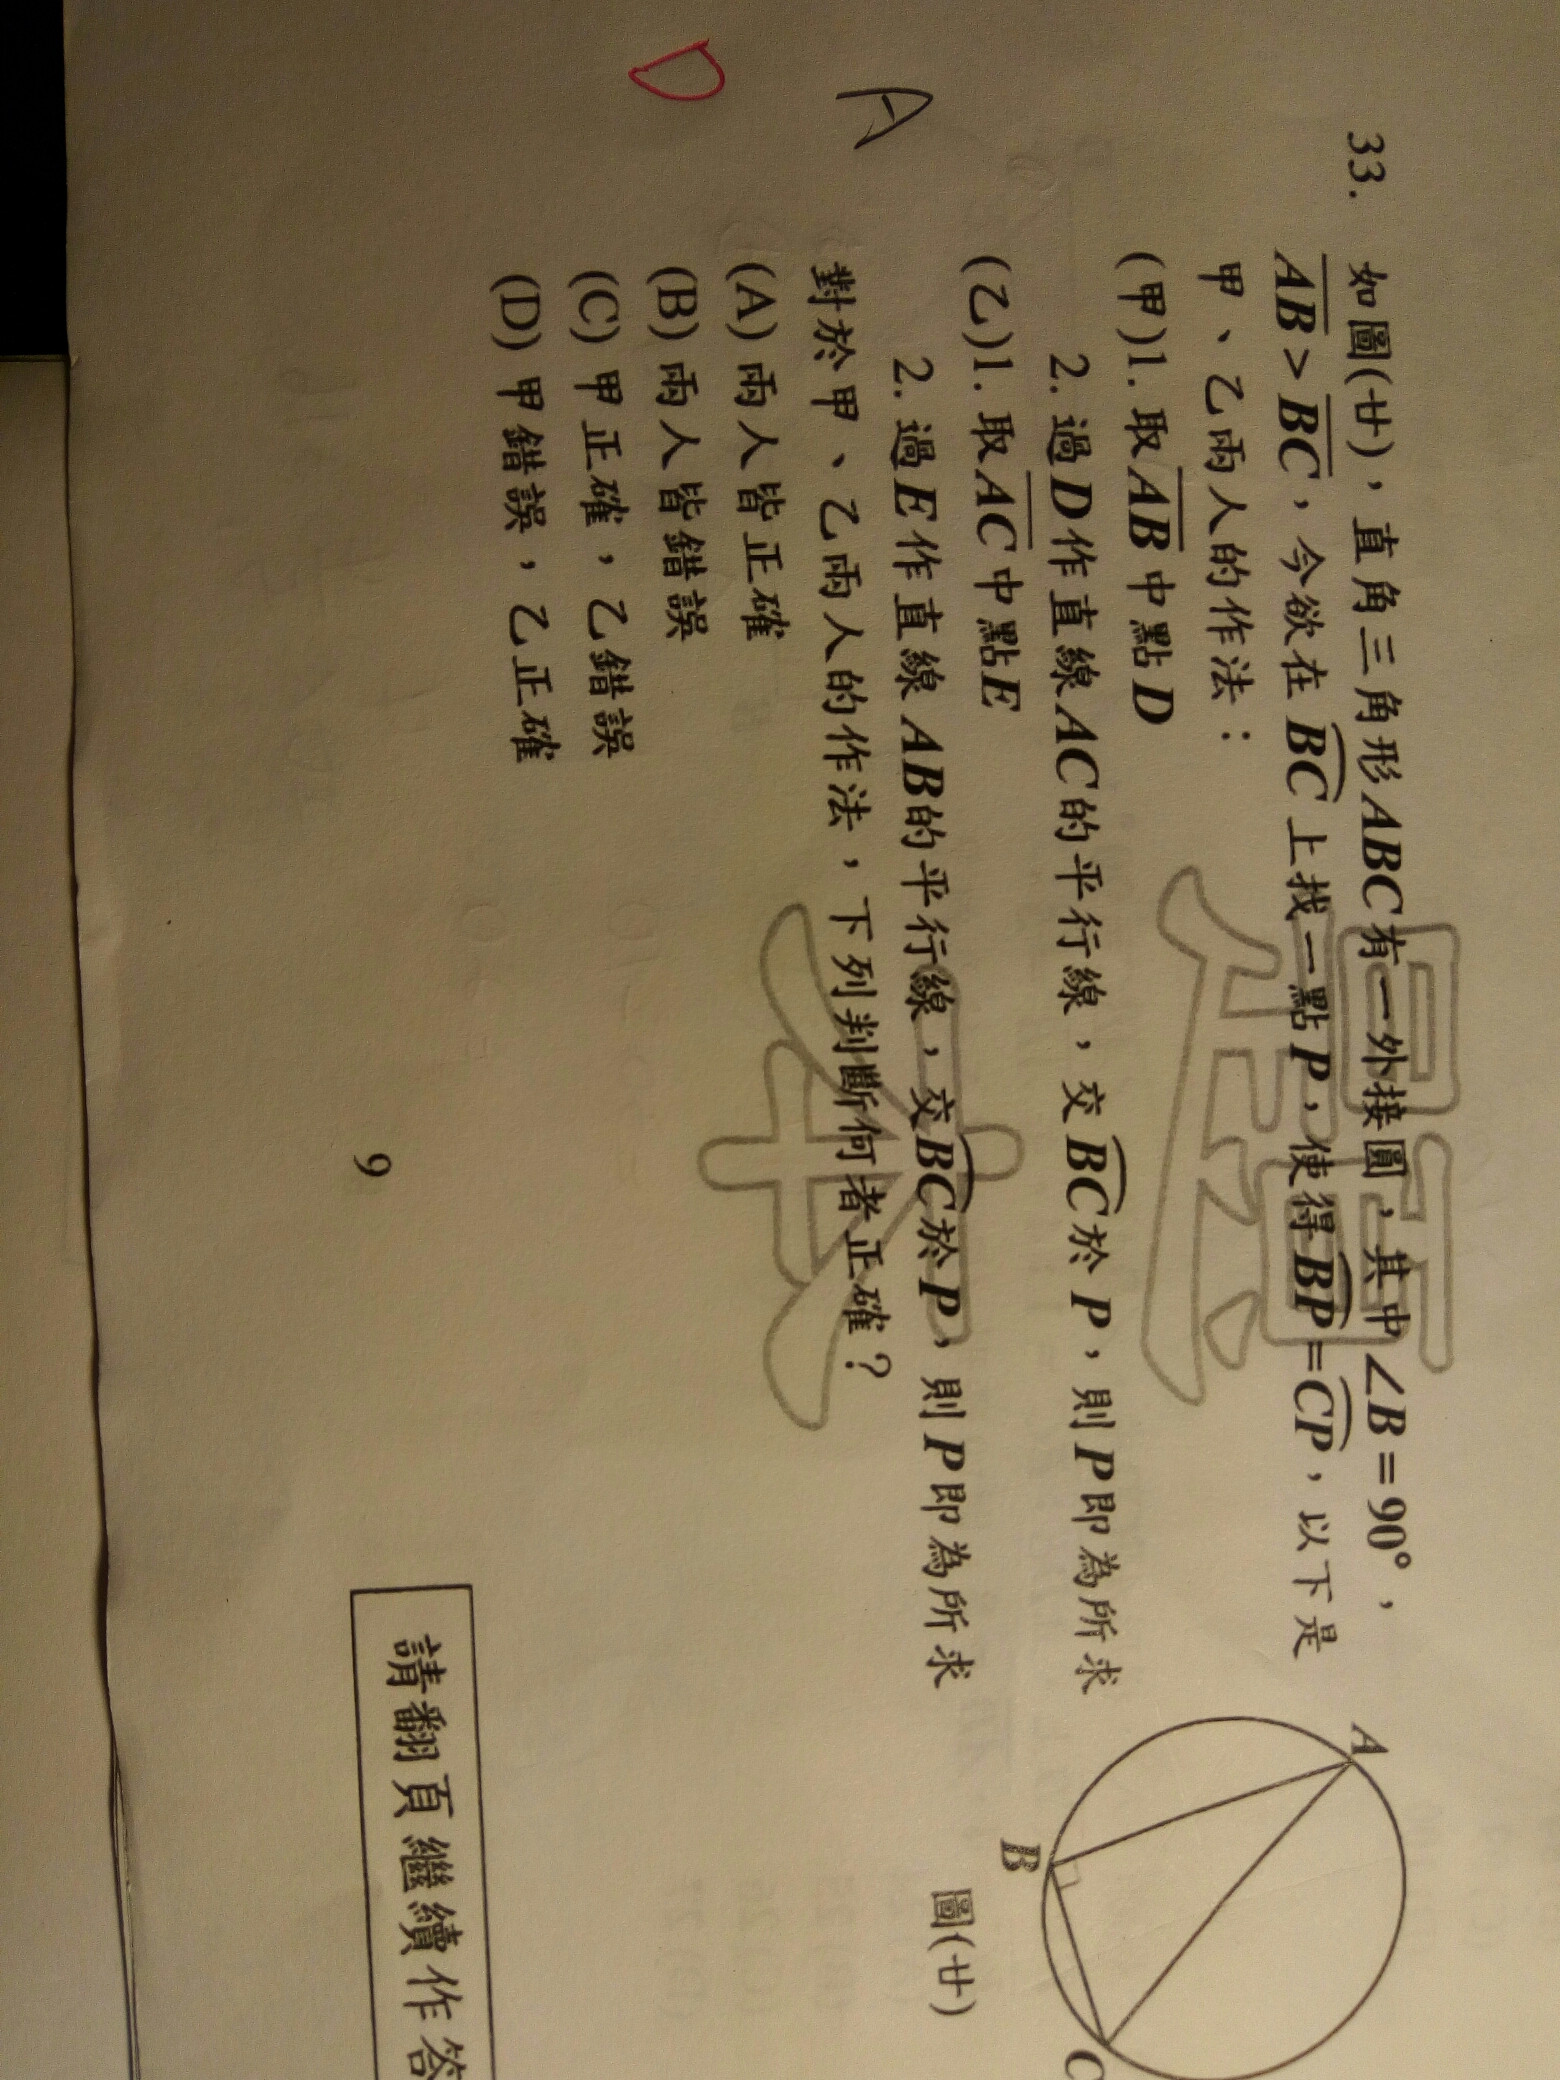 33. 如圖(廿)，直角三角形ABC有一外接圓，其中∠B=90°，
AB>BC，今欲在BC上找一點P，使得BP=CP，以下是
甲、乙兩人的作法：
(甲)1. 取AB中點D
2. 過D作直線AC的平行線，交BC於P，則P即為所求
(乙)1. 取AC中點E
2. 過E作直線AB的平行線，交BC於P，則P即為所求
對於甲、乙兩人的作法，下列判斷何者正確？
(A) 兩人皆正確
(B) 兩人皆錯誤
(C) 甲正確，乙錯誤
(D) 甲錯誤，乙正確
A
D
A
B
C
圖(廿)
9
請翻頁繼續作答